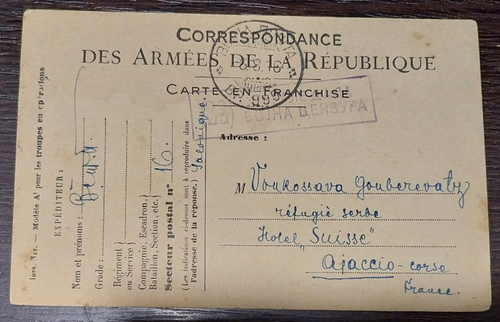 CORRESPONDANCE
DES ARMÉES DE LA RÉPUBLIQUE
CARTE EN FRANCHISE
ВОЈНА ЦЕНЗУРА
Adresse :
M Voukossava Gouberevatz
réfugié serbe
Hotel „Suisse"
Ajaccio - corso
France.
Modèle A¹ pour les troupes en opérations
EXPÉDITEUR :
Nom et prénoms :
Grade :
Régiment
ou Service
Compagnie, Escadron,
Bataillon, Section, etc.
Secteur postal n° 16.
Salonique.
(Les indications ci-dessus sont à reproduire dans
l'adresse de la réponse.)